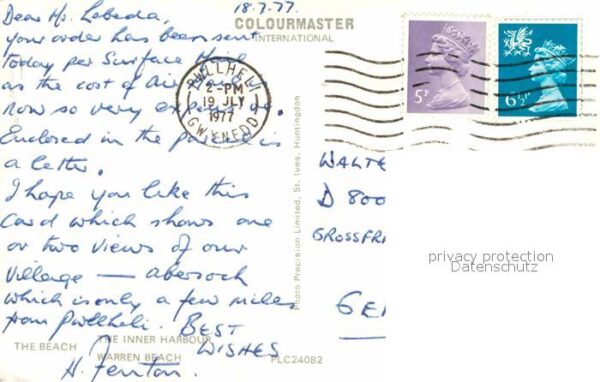 18.7.77.
Dear Mr. Lebeda,
your order has been sent
today per Surface Mail
as the cost of Air
now so very
Enclosed in the parcel is
a letter.
I hope you like this
Card which shows one
or two views of our
Village — Abersoch
which is only a few miles
from Pwllheli. BEST
WISHES
H. Fenton.
COLOURMASTER
INTERNATIONAL
PWLLHELI
2-PM
19 JLY
1977
GWYNEDD
5P
6½P
Photo Precision Limited, St. Ives, Huntingdon
WALTE
D 800
GROSSFR
GE
privacy protection
Datenschutz
THE INNER HARBOUR
THE BEACH
WARREN BEACH
PLC24082